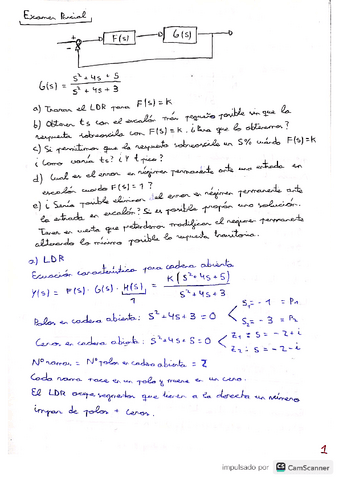 Examen Parcial
F(s)
G(s)
G(s) = s²+4s+5 / s²+4s+3
a) Trazar el LDR para F(s)=K
b) Obtener ts con el escalón más pequeño posible sin que la
respuesta sobreoscile con F(s)=K. ¿ que lo obtenemos?
c) Si permitimos que la respuesta sobreoscile un 5% cuándo F(s)=K
¿Como varía ts? ¿Y t pico?
d) Cual es el error en régimen permanente ante una entrada en
escalón cuando F(s)=1?
e) ¿Sería posible eliminar el error en régimen permanente ante
la entrada en escalón? Si es posible propón una solución.
Tener en cuenta que pretendemos modificar el regimen permanente
alterando lo mínimo posible la respuesta transitoria.
a) LDR
Ecuación característica para cadena abierta
Y(s) = F(s) · G(s) · H(s) = K(s²+4s+5) / s²+4s+3
1
Polos en cadena abierta: s²+4s+3=0 < S₁=-1 = P₁
S₂=-3 = P₂
Ceros en cadena abierta: s²+4s+5=0 < Z₁: s=-2+i
Z₂: s=-2-i
Nº ramas = Nº polos en cadena abierta = 2
Cada rama nace en un polo y muere en un cero.
El LDR ocupa segmentos que tienen a la derecha un número
impar de polos + ceros.
1
impulsado por CS CamScanner